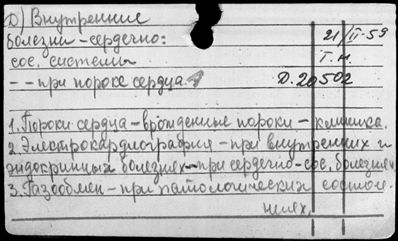 Д) Внутренние
болезни - сердечно:
сос. системы
-- при пороке сердца
21/II-59
Т. н.
Д. 20502
1. Пороки сердца - врожденные пороки - клиника.
2. Электрокардиография - при внутренних и
эндокринных болезнях -- при сердечно-сос. болезнях
3. Газообмен - при патологических состоя-
ниях.